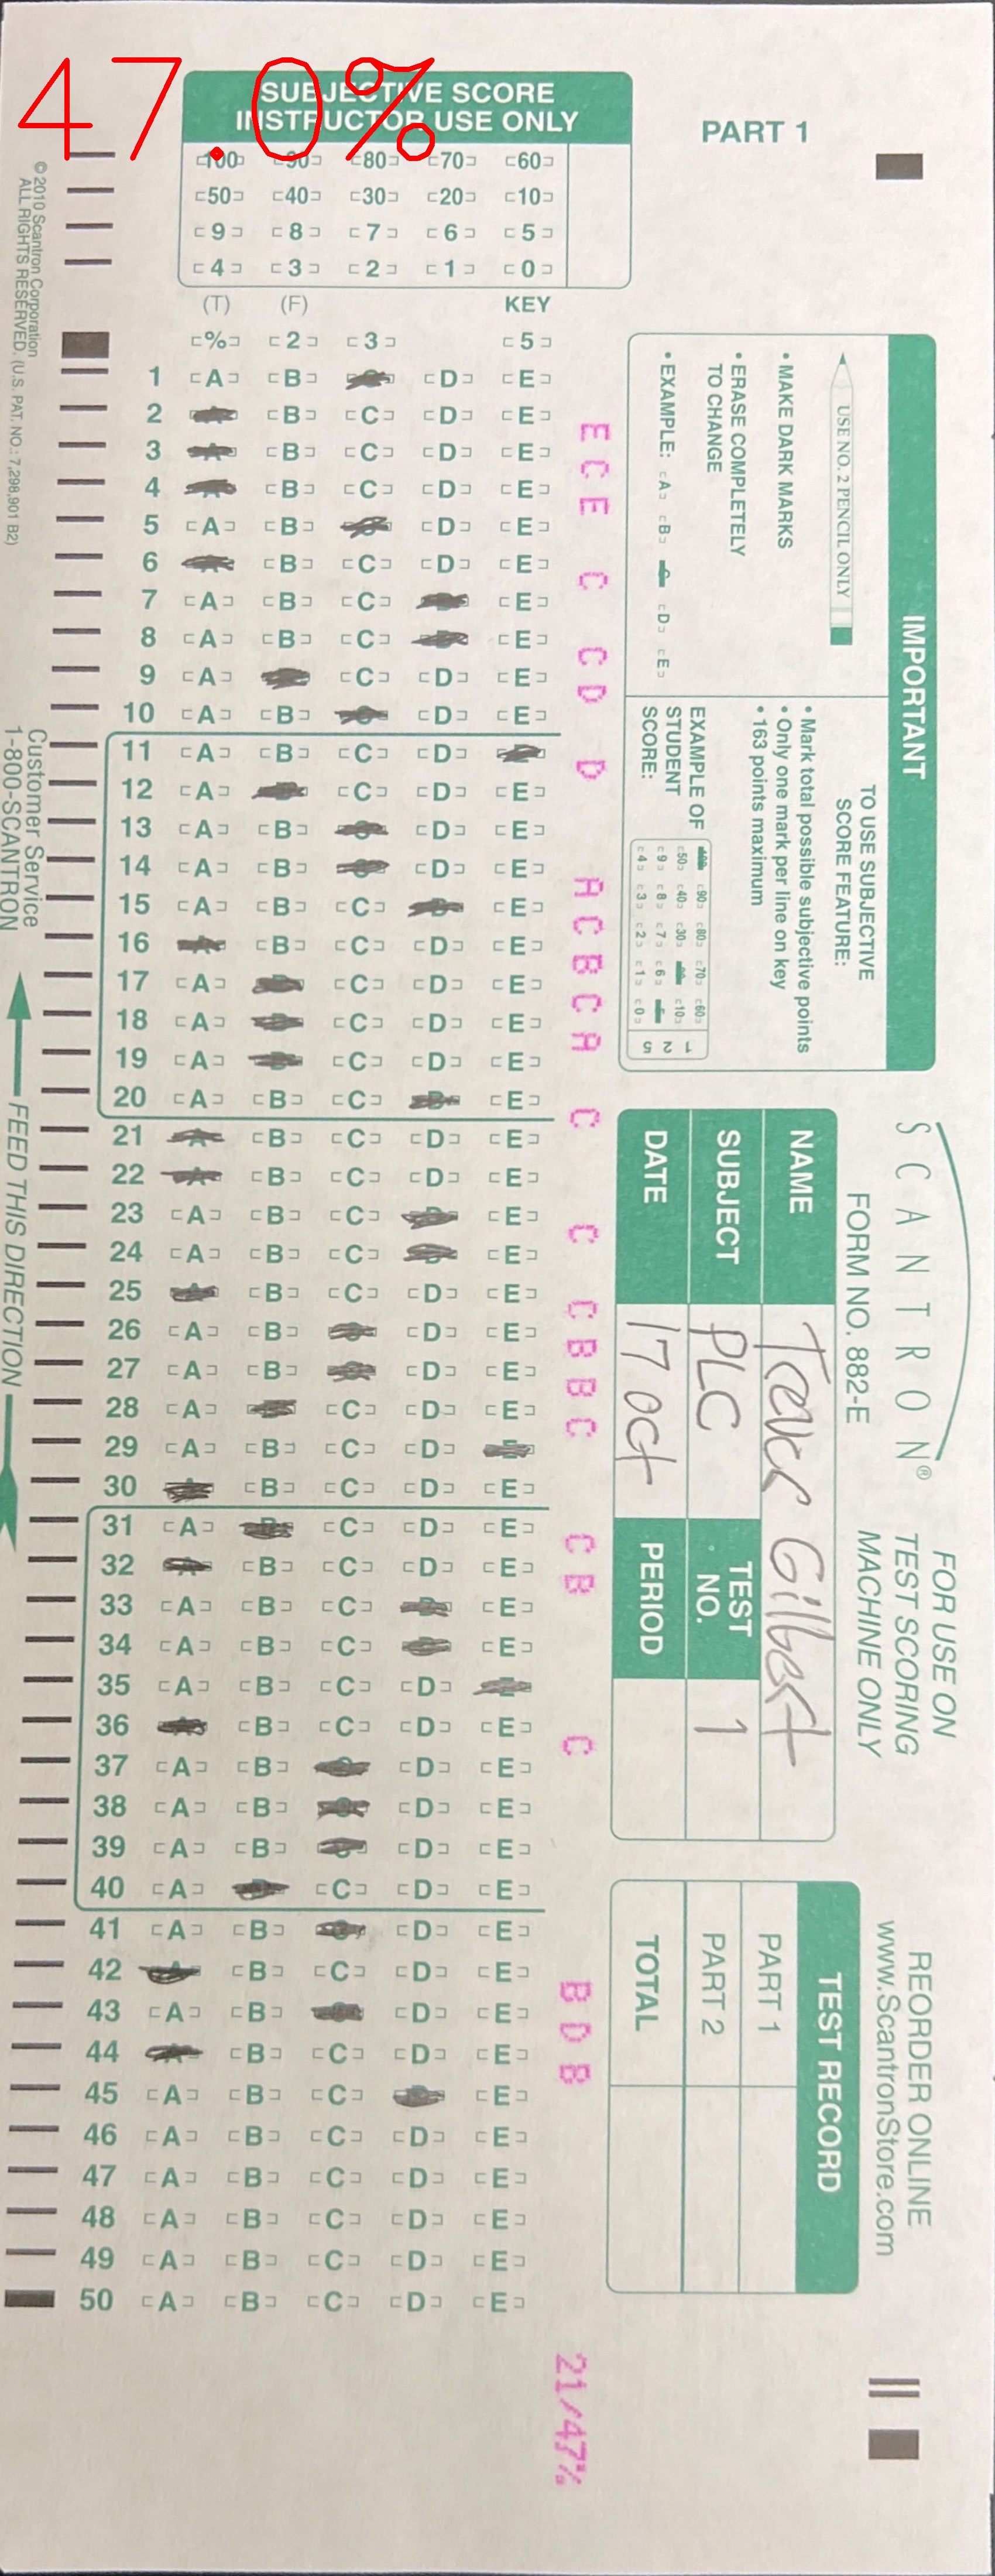 47.0%
SUBJECTIVE SCORE
INSTRUCTOR USE ONLY
100 90 80 70 60
50 40 30 20 10
9 8 7 6 5
4 3 2 1 0
PART 1
(T) (F) KEY
% 2 3 5
1 A B D E
2 B C D E
E
3 B C D E
C
4 B C D E
E
5 A B D E
6 B C D E
C
7 A B C E
8 A B C E
C
9 A C D E
D
10 A B D E
11 A B C D
D
12 A C D E
13 A B D E
14 A B D E
A
15 A B C E
C
16 B C D E
B
17 A C D E
C
18 A C D E
A
19 A C D E
20 A B C E
C
21 B C D E
22 B C D E
23 A B C E
C
24 A B C E
25 B C D E
C
26 A B D E
B
27 A B D E
B
28 A C D E
C
29 A B C D
30 B C D E
31 A C D E
C
32 B C D E
B
33 A B C E
34 A B C E
35 A B C D
36 B C D E
C
37 A B D E
38 A B D E
39 A B D E
40 A C D E
41 A B D E
42 B C D E
B
43 A B D E
D
44 B C D E
B
45 A B C E
46 A B C D E
47 A B C D E
48 A B C D E
49 A B C D E
50 A B C D E
21/47%
© 2010 Scantron Corporation
ALL RIGHTS RESERVED. (U.S. PAT. NO.: 7,298,901 B2)
Customer Service
1-800-SCANTRON
FEED THIS DIRECTION
IMPORTANT
USE NO. 2 PENCIL ONLY
• MAKE DARK MARKS
• ERASE COMPLETELY
TO CHANGE
• EXAMPLE: A B D E
TO USE SUBJECTIVE
SCORE FEATURE:
• Mark total possible subjective points
• Only one mark per line on key
• 163 points maximum
EXAMPLE OF
STUDENT
SCORE:
90 80 70 60
50 40 30 10
9 8 7 6
4 3 2 1 0
1
2
5
SCANTRON®
FORM NO. 882-E
FOR USE ON
TEST SCORING
MACHINE ONLY
NAME
SUBJECT PLC
TEST
NO. 1
DATE 17 oct
PERIOD
REORDER ONLINE
www.ScantronStore.com
TEST RECORD
PART 1
PART 2
TOTAL